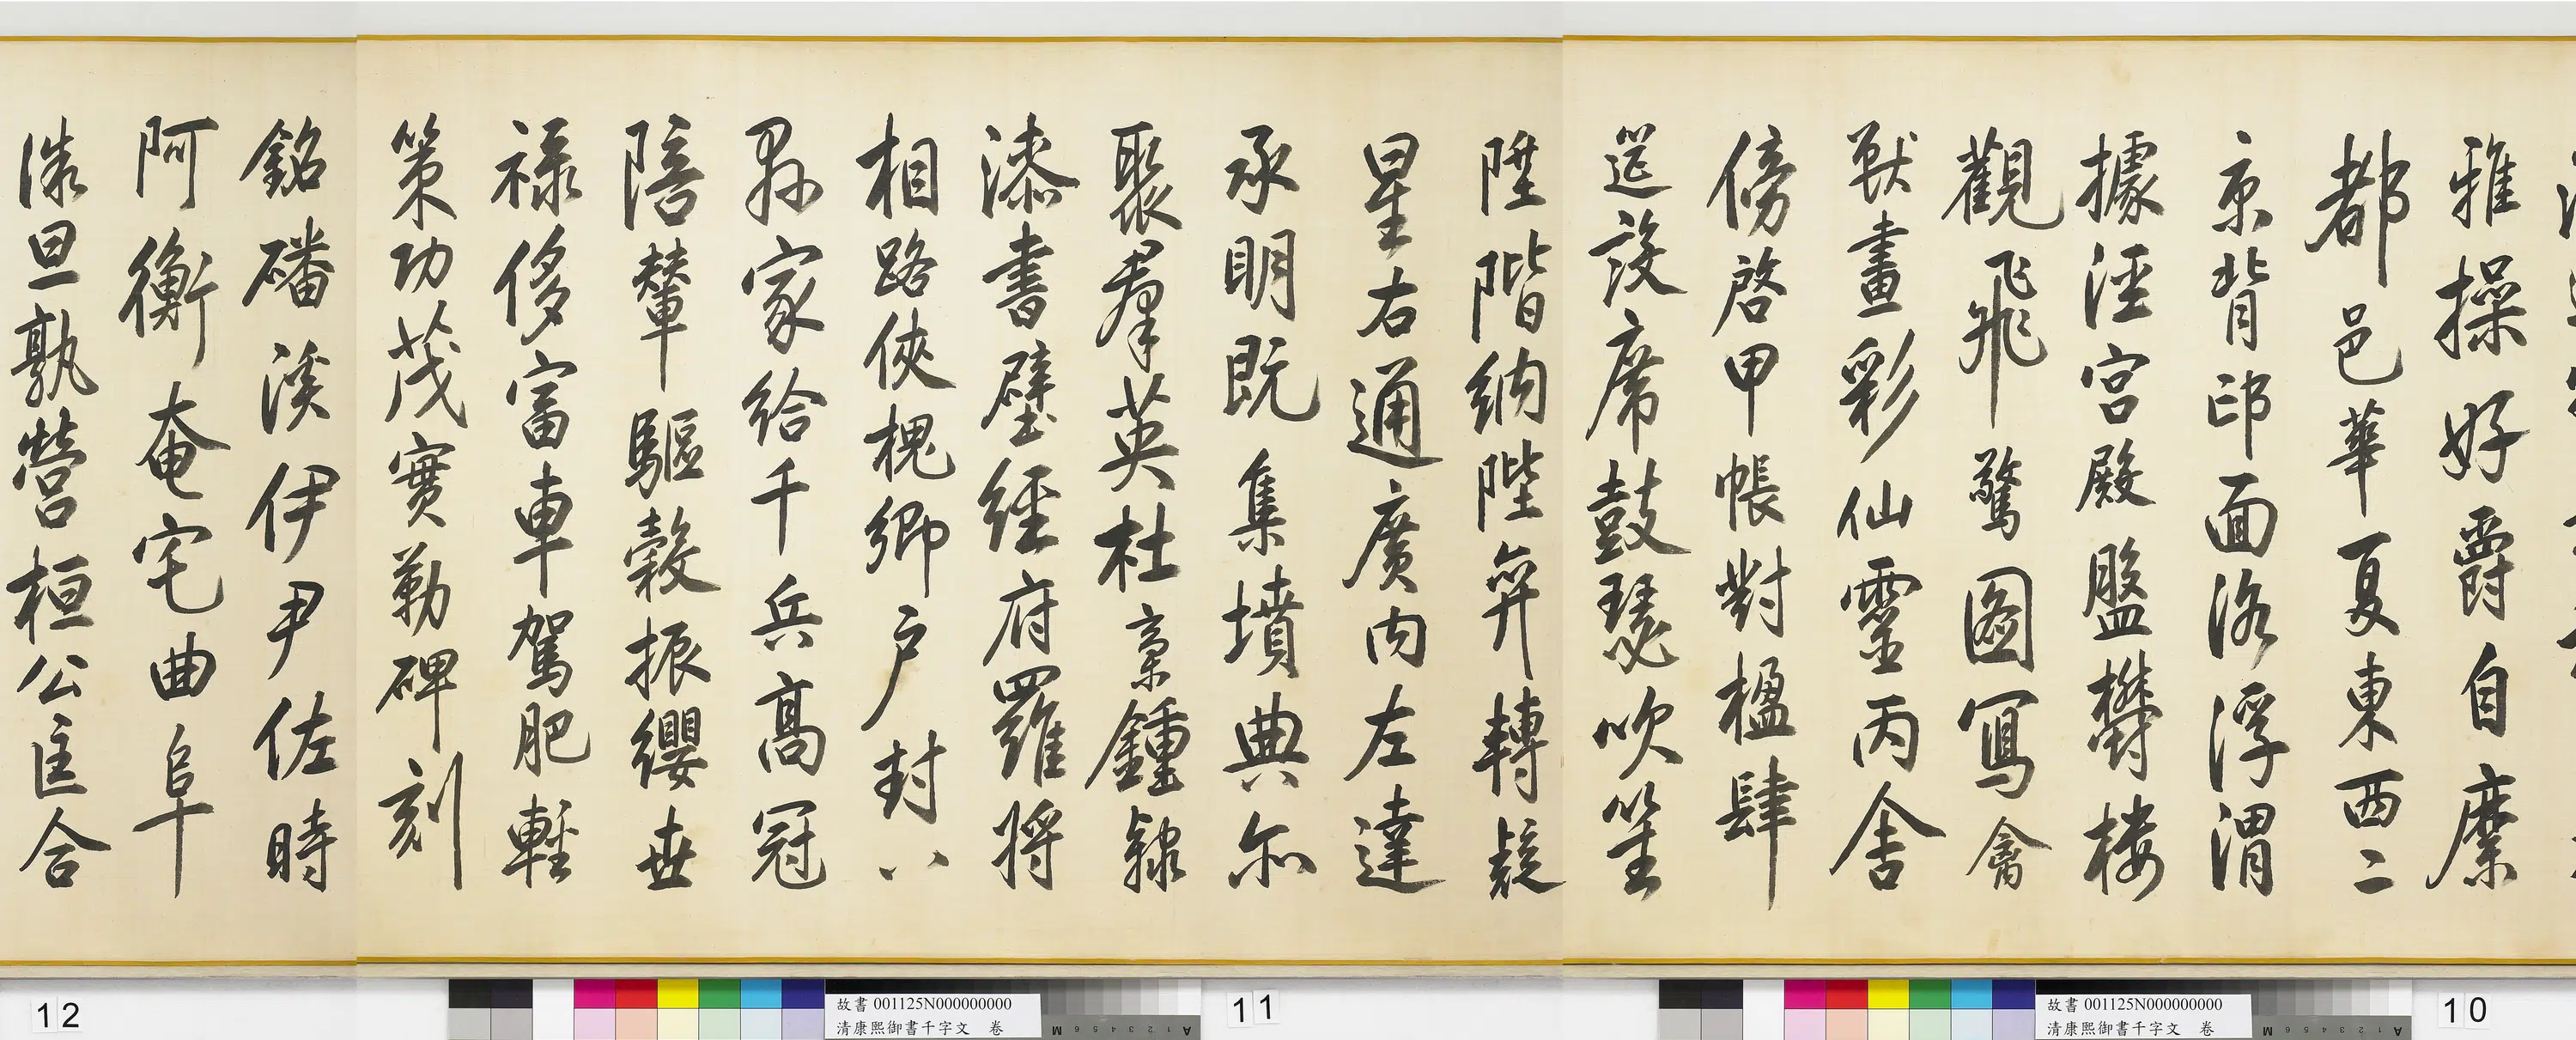 雅操好爵自縻
都邑華夏東西二
京背邙面洛浮渭
據涇宮殿盤欝楼
觀飛驚圖寫禽
獸畫彩仙靈丙舍
傍啓甲帳對楹肆
筵設席鼓瑟吹笙
陞階納陛弁轉疑
星右通廣內左達
承明既集墳典亦
聚羣英杜稾鍾隸
漆書壁經府羅將
相路俠槐卿户封八
縣家給千兵髙冠
陪輦驅轂振纓世
禄侈富車駕肥輕
策功茂實勒碑刻
銘磻溪伊尹佐時
阿衡奄宅曲阜
微旦孰營桓公匡合
12
故書 001125N000000000
清康熙御書千字文 卷
11
故書 001125N000000000
清康熙御書千字文 卷
10